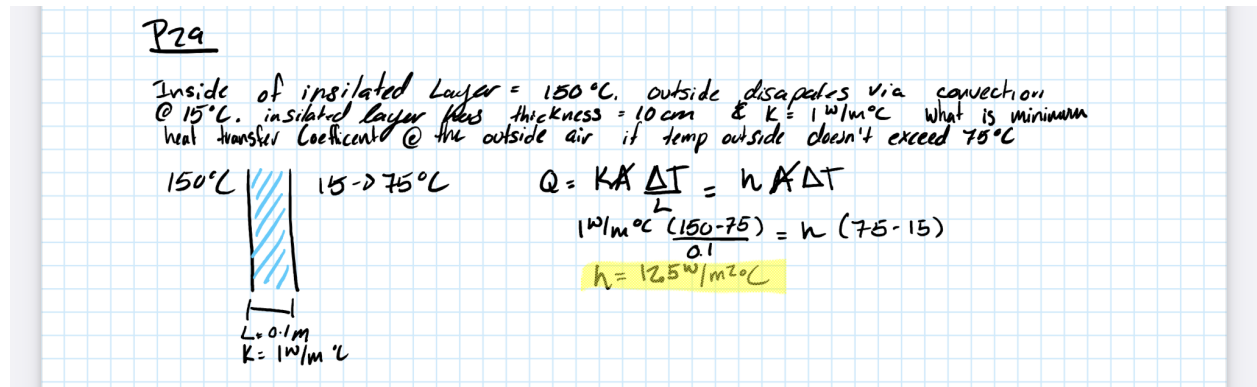 P29
Inside of insilated Layer = 150°C. outside disapates via convection
@ 15°C. insilated layer has thickness = 10 cm & K = 1 W/m°C what is minimum
heat transfer Coefficent @ the outside air if temp outside doesn't exceed 75°C
150°C 15->75°C Q = KA ΔT/L = hAΔT
1W/m°C (150-75)/0.1 = h (75-15)
h = 12.5 W/m²°C
L = 0.1m
K = 1W/m°C